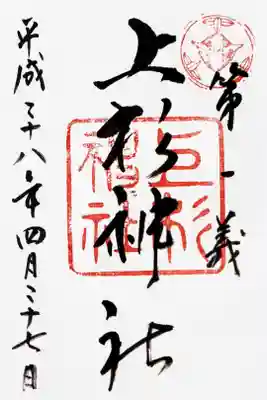 第一義
上杉神社
上杉神社
平成二十八年四月二十七日